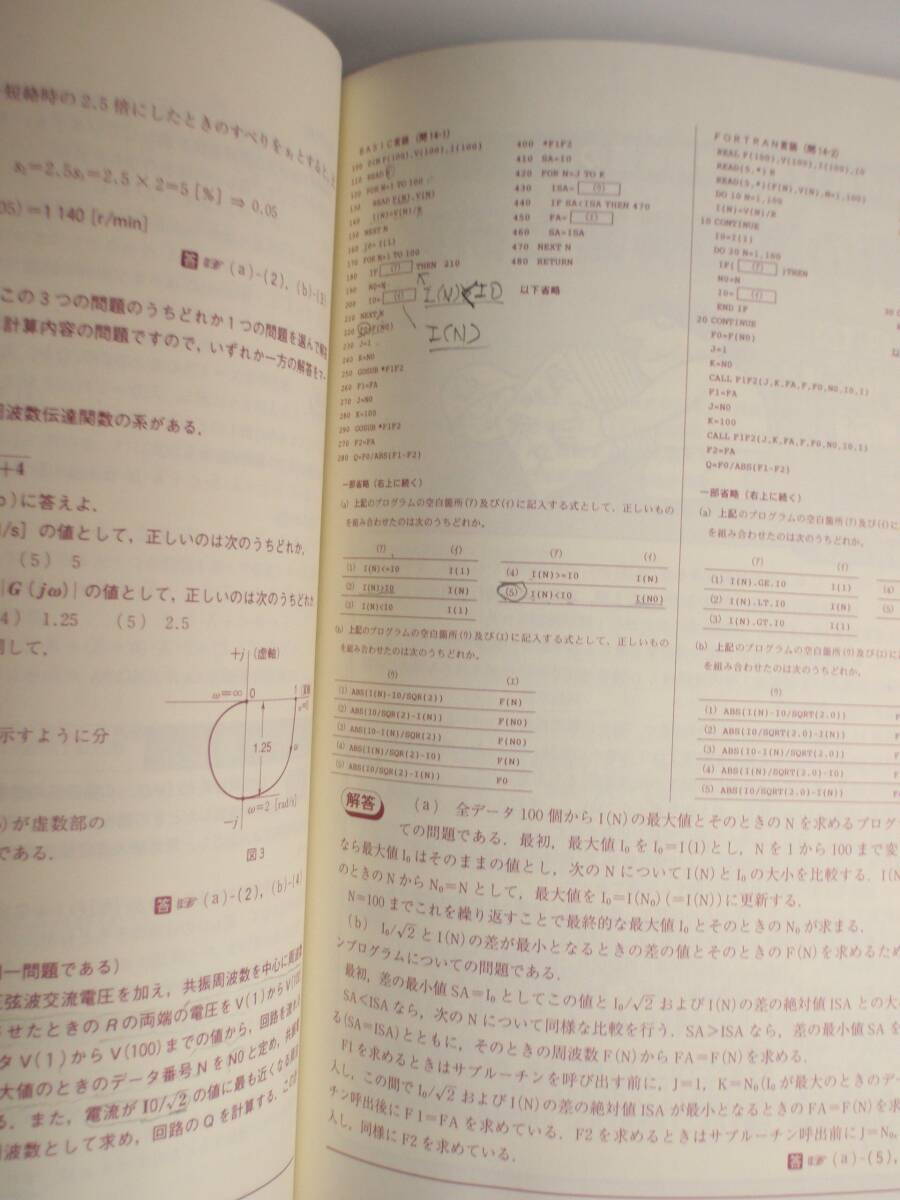 短絡時の2.5倍にしたときのすべりをs₂とすると,
s₂=2.5s₁=2.5×2=5[%]⇒0.05
05)=1140[r/min]
答 ☞ (a)-(2), (b)-(3)
この3つの問題のうちどれか1つの問題を選んで解答
計算内容の問題ですので, いずれか一方の解答をマー
周波数伝達関数の系がある.
+4
)に答えよ.
/s]の値として, 正しいのは次のうちどれか.
(5) 5
|G(jω)|の値として, 正しいのは次のうちどれか
4) 1.25 (5) 2.5
示すように分
)が虚数部の
である.
+j (虚軸)
ω=∞ 0 1
1.25
ω=2 [rad/s]
-j
図3
答 ☞ (a)-(2), (b)-(4)
同一問題である)
正弦波交流電圧を加え, 共振周波数を中心に周波数
させたときのRの両端の電圧をV(1)からV(100
タV(1)からV(100)までの値から, 回路を流れ
大値のときのデータ番号NをN0と定め, 共振周
る. また, 電流がI0/√2の値に最も近くなる周
周波数として求め, 回路のQを計算する.
BASIC言語 (問14-1)
100 DIM F(100),V(100),I(100)
110 READ R
120 FOR N=1 TO 100
130 READ F(N),V(N)
140 I(N)=V(N)/R
150 NEXT N
160 I0=I(1)
170 FOR N=1 TO 100
180 IF (ア) THEN 210
190 N0=N
200 I0= (イ)
210 NEXT N
220 F0=F(N0)
230 J=1
240 K=N0
250 GOSUB *F1F2
260 F1=FA
270 J=N0
280 K=100
290 GOSUB *F1F2
270 F2=FA
280 Q=F0/ABS(F1-F2)
400 *F1F2
410 SA=I0
420 FOR N=J TO K
430 ISA= (ウ)
440 IF SA<ISA THEN 470
450 FA= (エ)
460 SA=ISA
470 NEXT N
480 RETURN
以下省略
I(N)<I0
I(N)
一部省略 (右上に続く)
(a) 上記のプログラムの空白箇所(ア)及び(イ)に記入する式として, 正しいもの
を組み合わせたのは次のうちどれか.
(ア) (イ) (ア) (イ)
(1) I(N)<=I0 I(1) (4) I(N)>=I0 I(N)
(2) I(N)>I0 I(N) (5) I(N)<I0 I(N0)
(3) I(N)<I0 I(1)
(b) 上記のプログラムの空白箇所(ウ)及び(エ)に記入する式として, 正しいもの
を組み合わせたのは次のうちどれか.
(ウ) (エ)
(1) ABS(I(N)-I0/SQR(2)) F(N)
(2) ABS(I0/SQR(2)-I(N)) F(N0)
(3) ABS(I0-I(N)/SQR(2)) F(N0)
(4) ABS(I(N)/SQR(2)-I0) F(N)
(5) ABS(I0/SQR(2)-I(N)) F0
FORTRAN言語 (問14-2)
REAL F(100),V(100),I(100),I0
READ(5,*) R
READ(5,*)(F(N),V(N),N=1,100)
DO 10 N=1,100
I(N)=V(N)/R
10 CONTINUE
I0=I(1)
DO 20 N=1,100
IF( (ア) )THEN
N0=N
I0= (イ)
END IF
20 CONTINUE
F0=F(N0)
J=1
K=N0
CALL F1F2(J,K,FA,F,F0,N0,I0,I)
F1=FA
J=N0
K=100
CALL F1F2(J,K,FA,F,F0,N0,I0,I)
F2=FA
Q=F0/ABS(F1-F2)
一部省略 (右上に続く)
(a) 上記のプログラムの空白箇所(ア)及び(イ)に
を組み合わせたのは次のうちどれか.
(ア) (イ)
(1) I(N).GE.I0 I(1) (4)
(2) I(N).LT.I0 I(N) (5)
(3) I(N).GT.I0 I(1)
(b) 上記のプログラムの空白箇所(ウ)及び(エ)に
を組み合わせたのは次のうちどれか.
(ウ)
(1) ABS(I(N)-I0/SQRT(2.0))
(2) ABS(I0/SQRT(2.0)-I(N))
(3) ABS(I0-I(N)/SQRT(2.0))
(4) ABS(I(N)/SQRT(2.0)-I0)
(5) ABS(I0/SQRT(2.0)-I(N))
解答 (a) 全データ100個からI(N)の最大値とそのときのNを求めるプログラ
ての問題である. 最初, 最大値I₀をI₀=I(1)とし, Nを1から100まで変
なら最大値I₀はそのままの値とし, 次のNについてI(N)とI₀の大小を比較する. I(N
のときのNからN₀=Nとして, 最大値をI₀=I(N₀)(=I(N))に更新する.
N=100までこれを繰り返すことで最終的な最大値I₀とそのときのN₀が求まる.
(b) I₀/√2とI(N)の差が最小となるときの差の値とそのときのF(N)を求めるため
ンプログラムについての問題である.
最初, 差の最小値SA=I₀としてこの値とI₀/√2およびI(N)の差の絶対値ISAとの大
SA<ISAなら, 次のNについて同様な比較を行う. SA>ISAなら, 差の最小値SAを
る(SA=ISA)とともに, そのときの周波数F(N)からFA=F(N)を求める.
F1を求めるときはサブルーチンを呼び出す前に, J=1, K=N₀(I₀が最大のときのデー
入し, この間でI₀/√2およびI(N)の差の絶対値ISAが最小となるときのFA=F(N)を求
チン呼出後にF1=FAを求めている. F2を求めるときはサブルーチン呼出前にJ=N₀,
入し, 同様にF2を求めている.
答 ☞ (a)-(5),